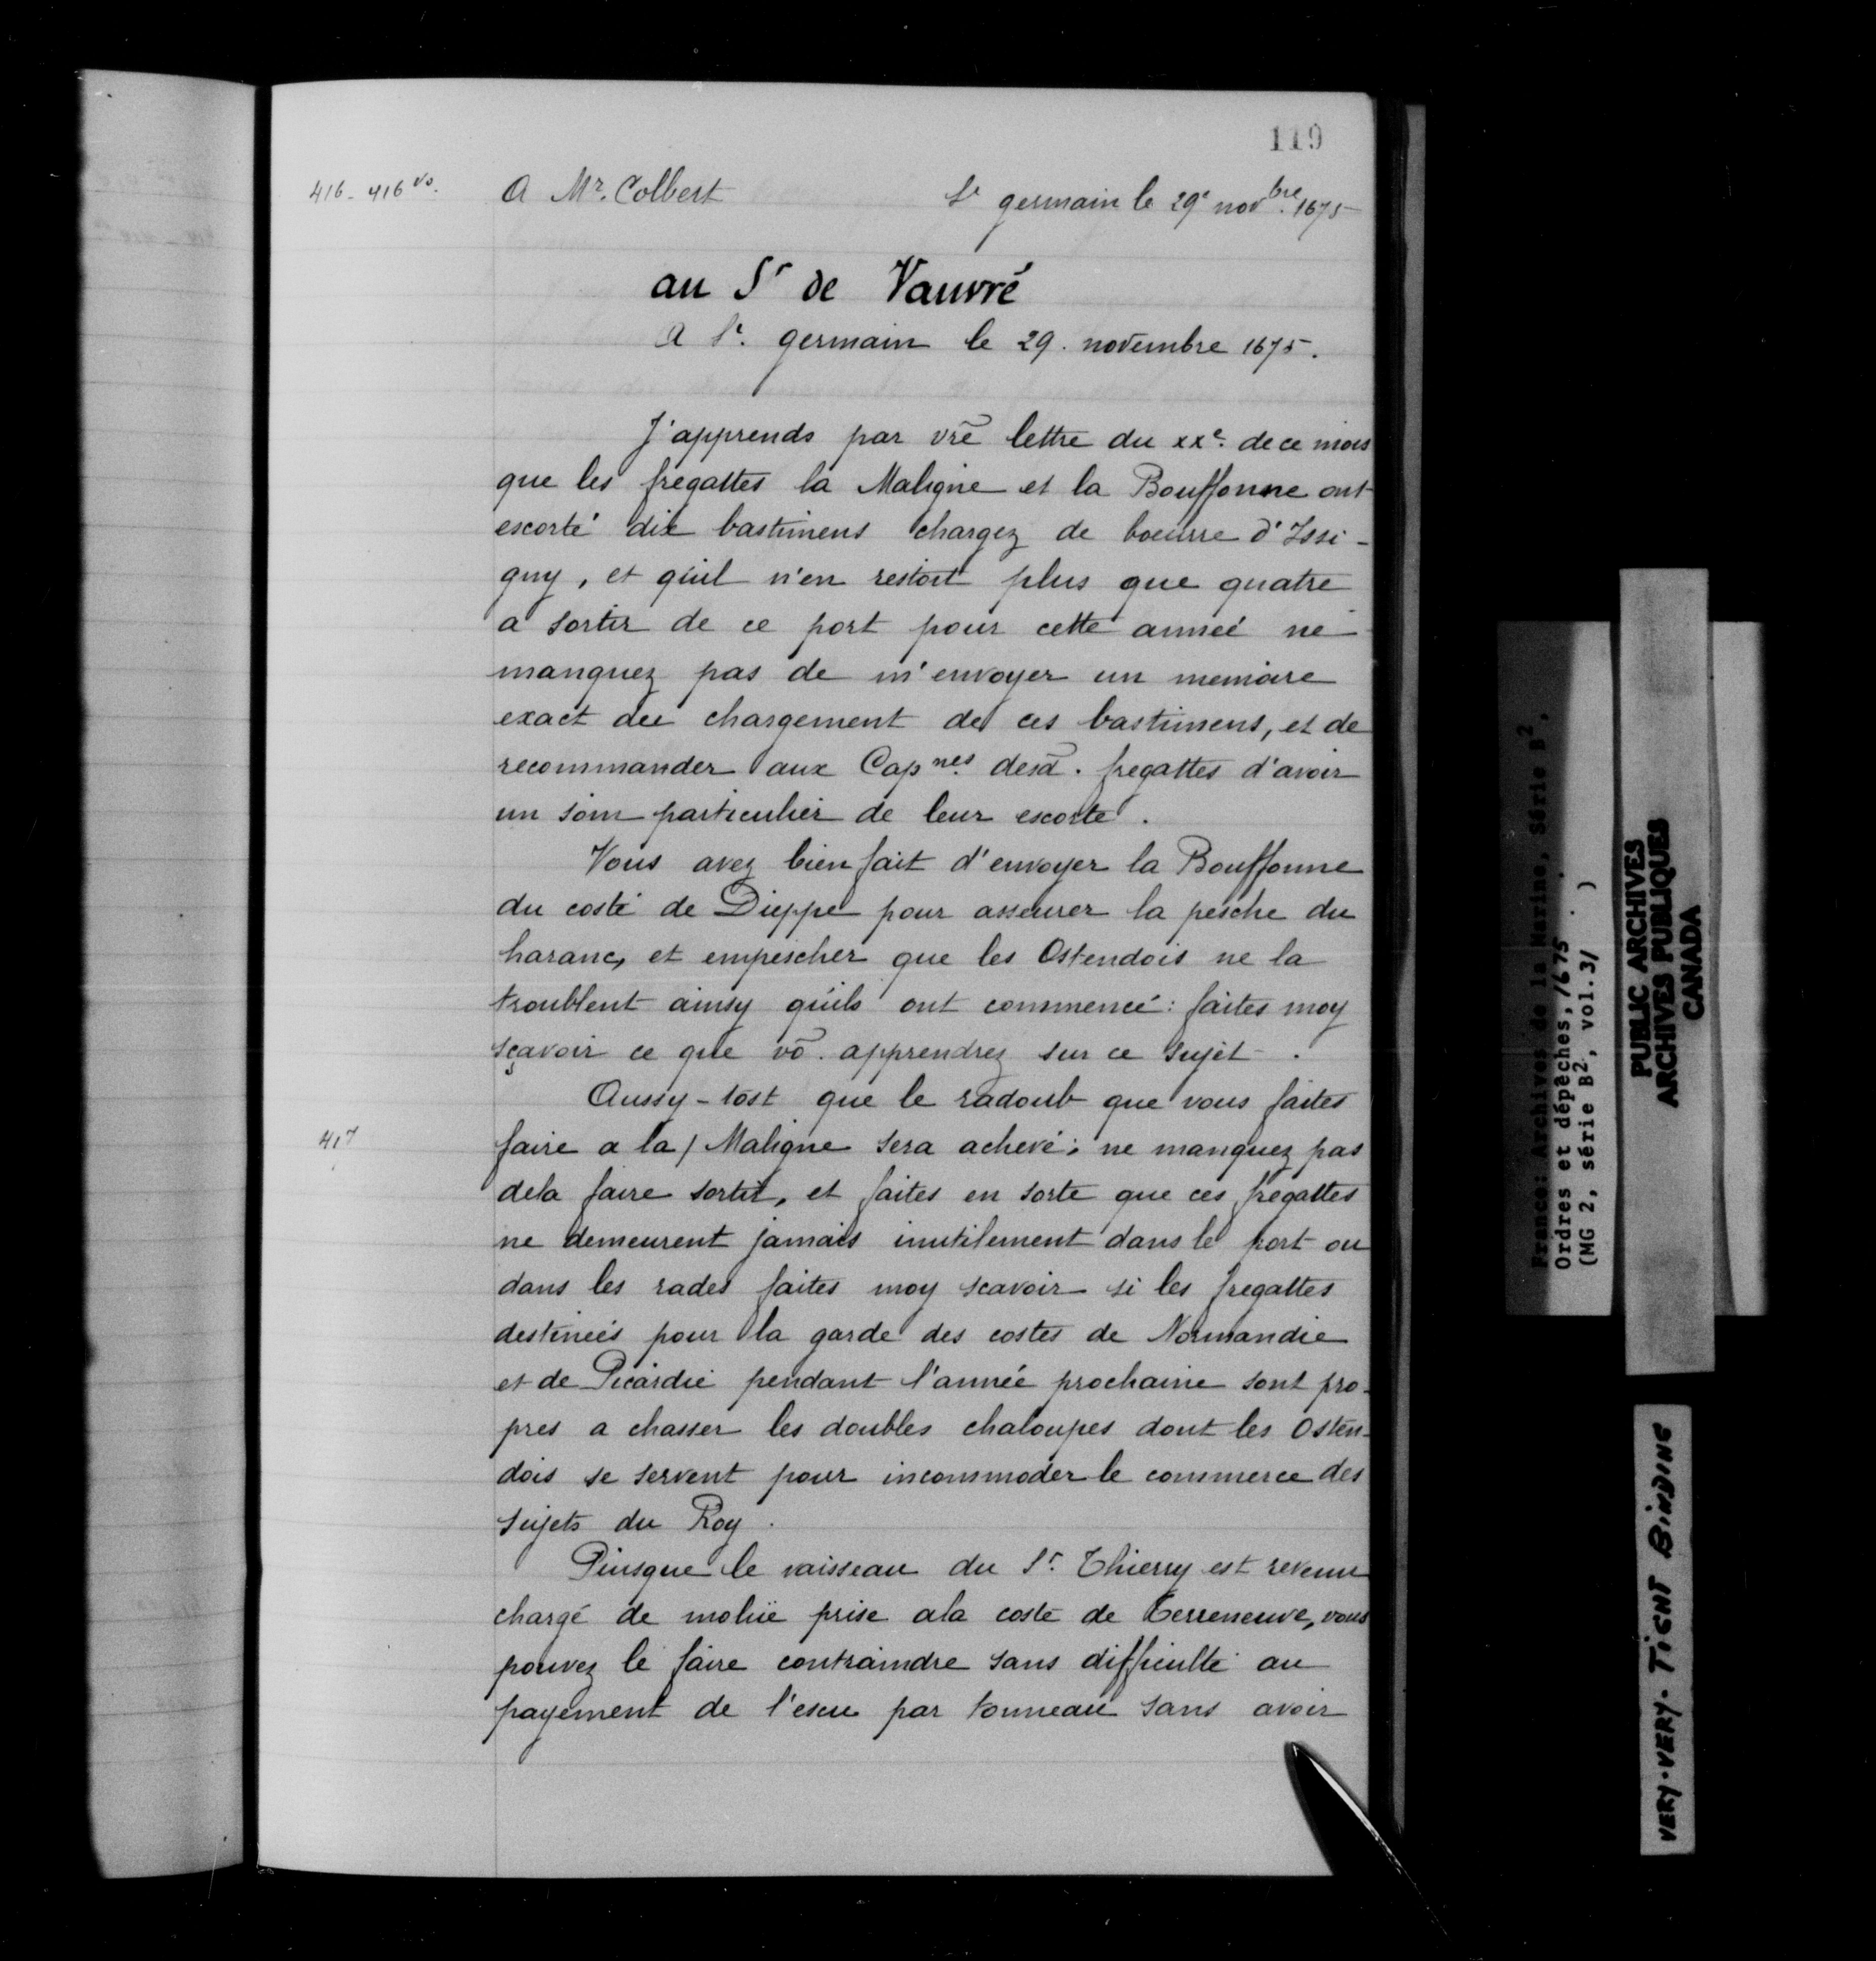 119
416 - 416 vo. A Mr. Colbert St germain le 29e novbre. 1675
au Sr de Vauvré
A St. germain le 29. novembre 1675.
J'apprends par vr̃e lettre du xxe. de ce mois
que les fregattes la Maligne et la Bouffonne ont
escorté dix bastimens chargez de boeurre d'Issi-
gny, et qu'il n'en restoit plus que quatre
a sortir de ce port pour cette année ne
manquez pas de m'envoyer un memoire
exact du chargement de ces bastimens, et de
recommander aux Capnes. desd. fregattes d'avoir
un soin particulier de leur escorte.
Vous avez bien fait d'envoyer la Bouffonne
du costé de Dieppe pour asseurer la pesche du
haranc, et empescher que les Ostendois ne la
troublent ainsy qu'ils ont commencé: faites moy
sçavoir ce que võ. apprendrez sur ce sujet.
Aussy-tost que le radoub que vous faites
417 faire a la / Maligne sera achevé; ne manquez pas
dela faire sortir, et faites en sorte que ces fregattes
ne demeurent jamais inutilement dans le port ou
dans les rades faites moy scavoir si les fregattes
destinées pour la garde des costes de Normandie
et de Picardie pendant l'année prochaine sont pro-
pres a chasser les doubles chaloupes dont les Osten-
dois se servent pour incommoder le commerce des
sujets du Roy.
Puisque le vaisseau du Sr. Thierry est revenu
chargé de moluë prise ala coste de Terreneuve, vous
pouvez le faire contraindre sans difficulté au
payement de l'escu par tonneau sans avoir
France: Archives de la Marine, Série B2,
Ordres et dépêches, 1675
(MG 2, série B2, vol. 31 )
PUBLIC ARCHIVES
ARCHIVES PUBLIQUES
CANADA
VERY-VERY-TIGHT BINDING